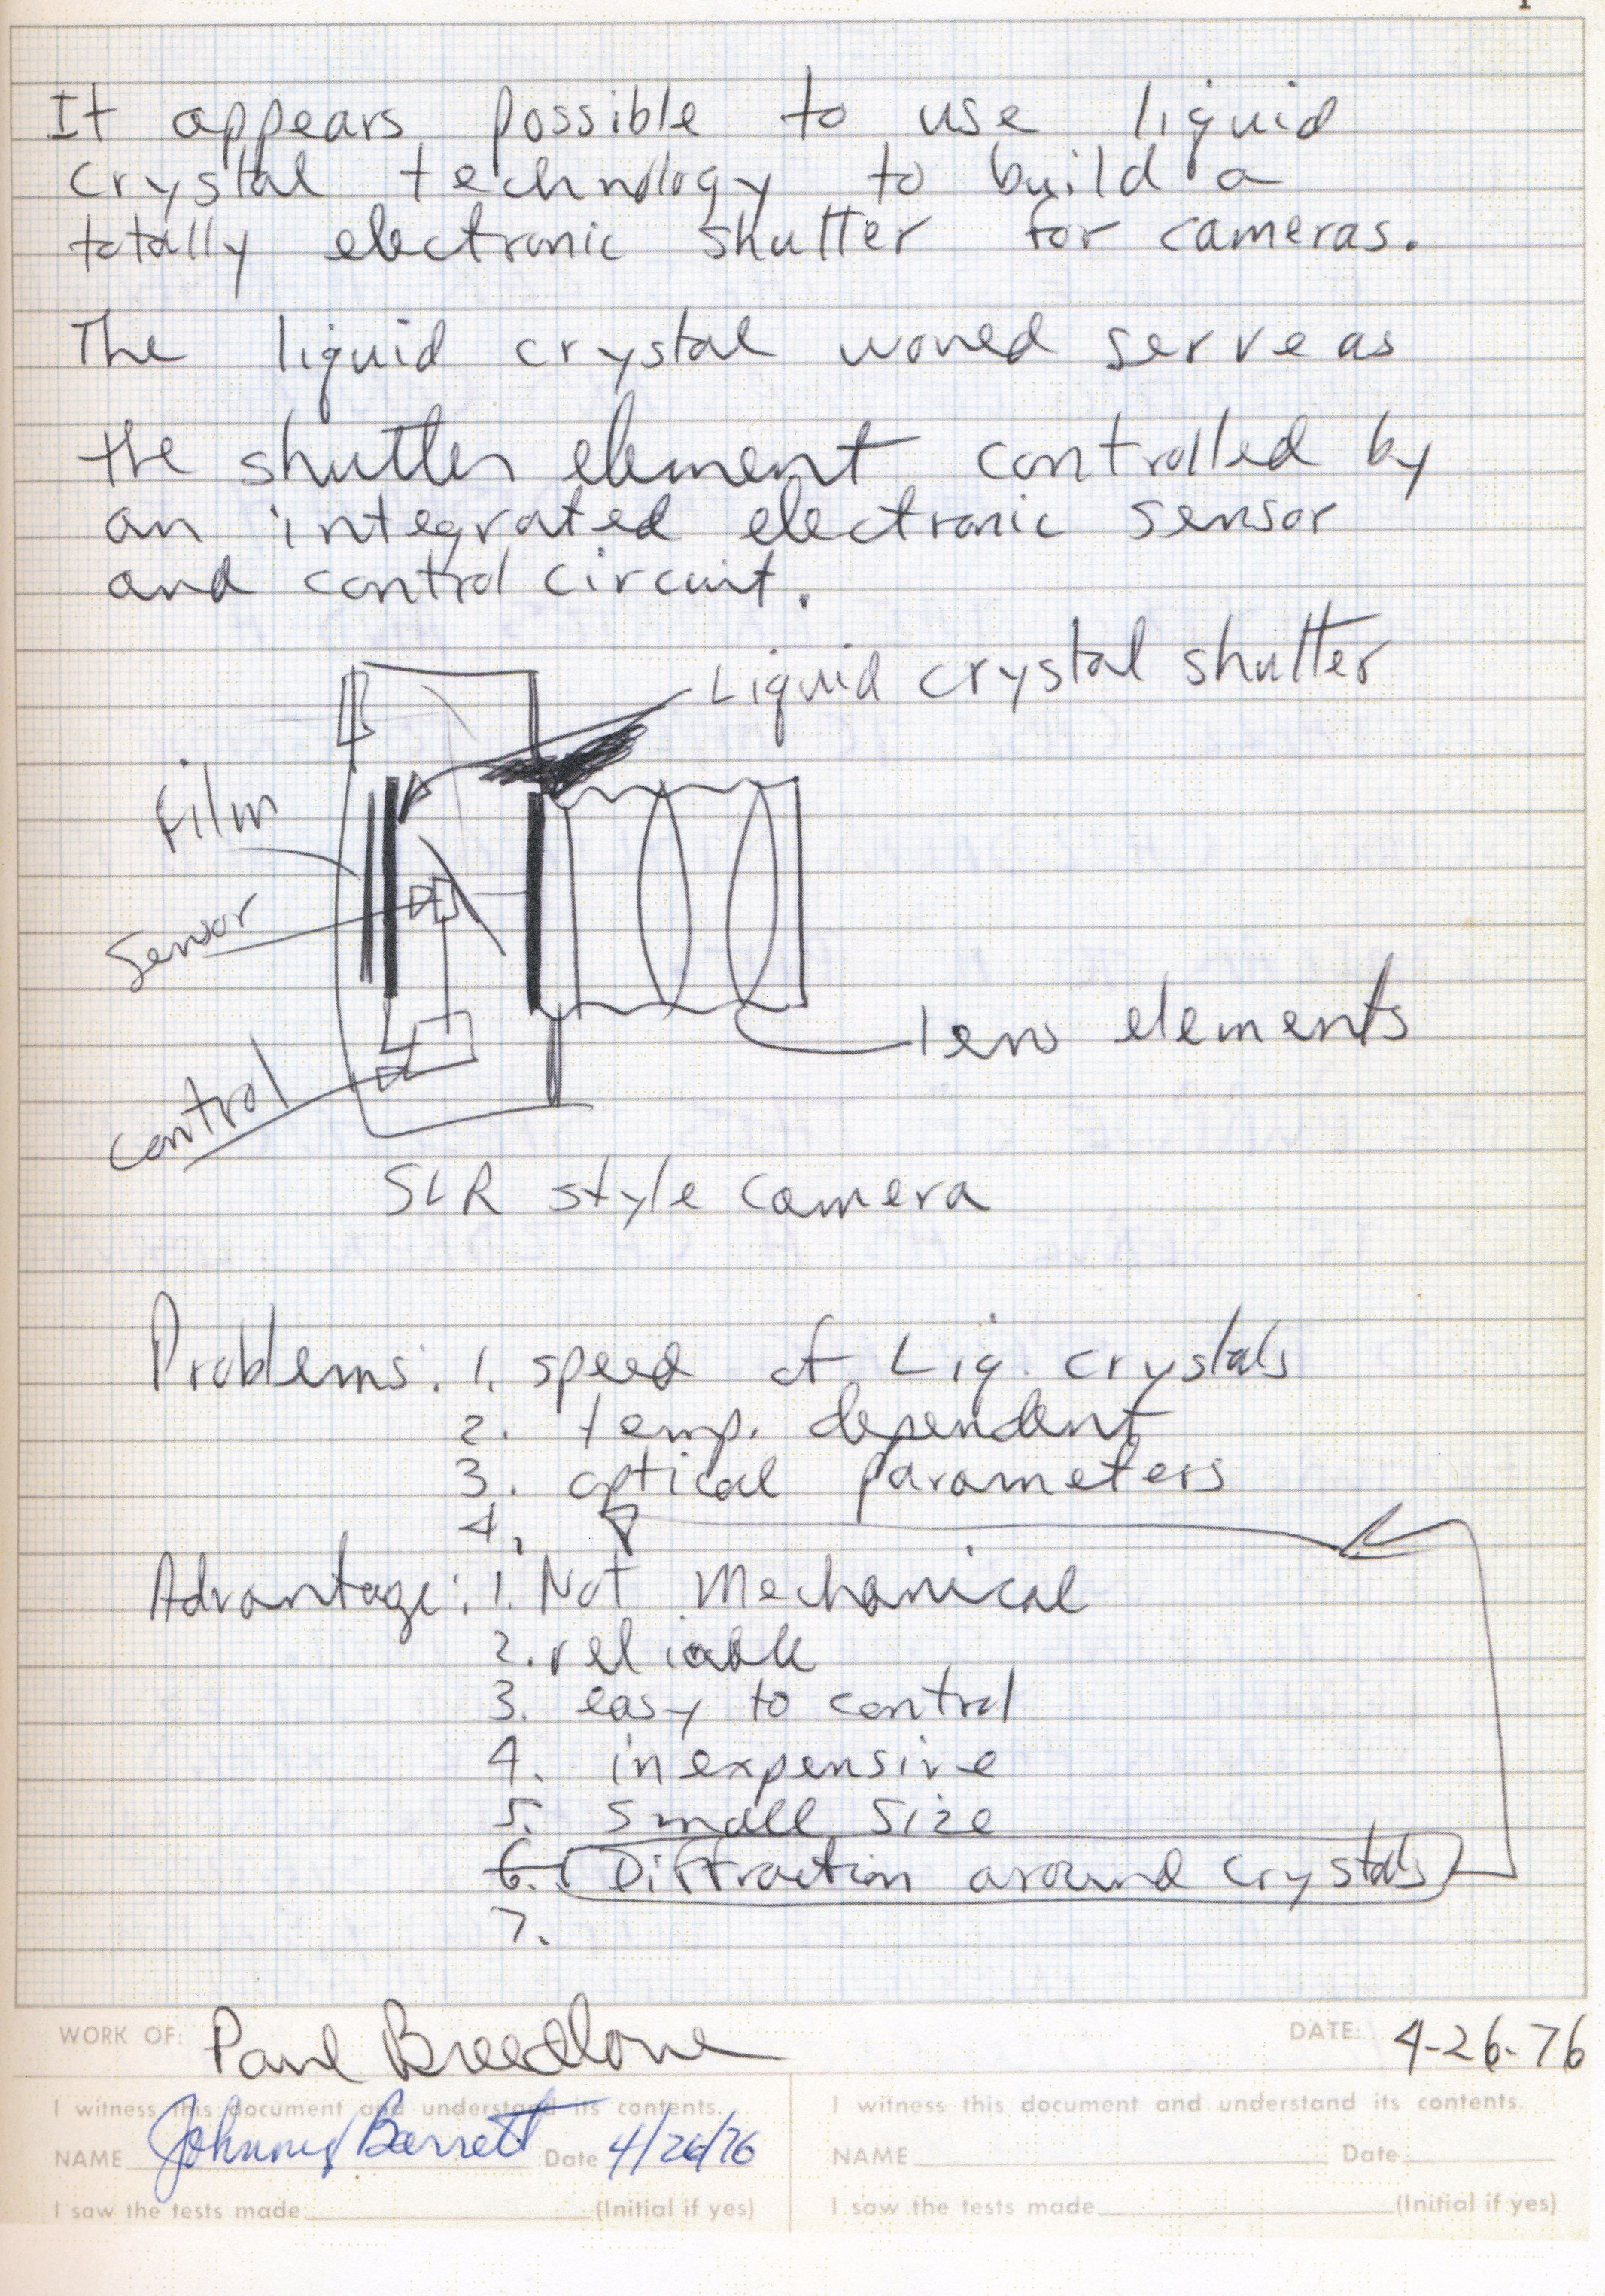 It appears possible to use liquid
crystal technology to build a
totally electronic shutter for cameras.
The liquid crystal would serve as
the shutter element controlled by
an integrated electronic sensor
and control circuit.
Liquid crystal shutter
Film
Sensor
lens elements
Control
SLR style camera
Problems: 1. speed of Liq. crystals
2. temp. dependent
3. optical parameters
4.
Advantage: 1. Not Mechanical
2. reliable
3. easy to control
4. inexpensive
5. Small Size
6. Diffraction around crystals
7.
WORK OF: Paul Breedlove DATE: 4-26-76
I witness this document and understand its contents. I witness this document and understand its contents.
NAME Johnny Barrett Date 4/26/76 NAME Date
I saw the tests made (Initial if yes) I saw the tests made (Initial if yes)